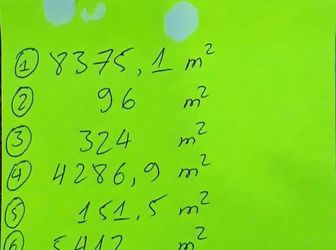 ① 8375,1 m²
② 96 m²
③ 324 m²
④ 4286,9 m²
⑤ 151,5 m²